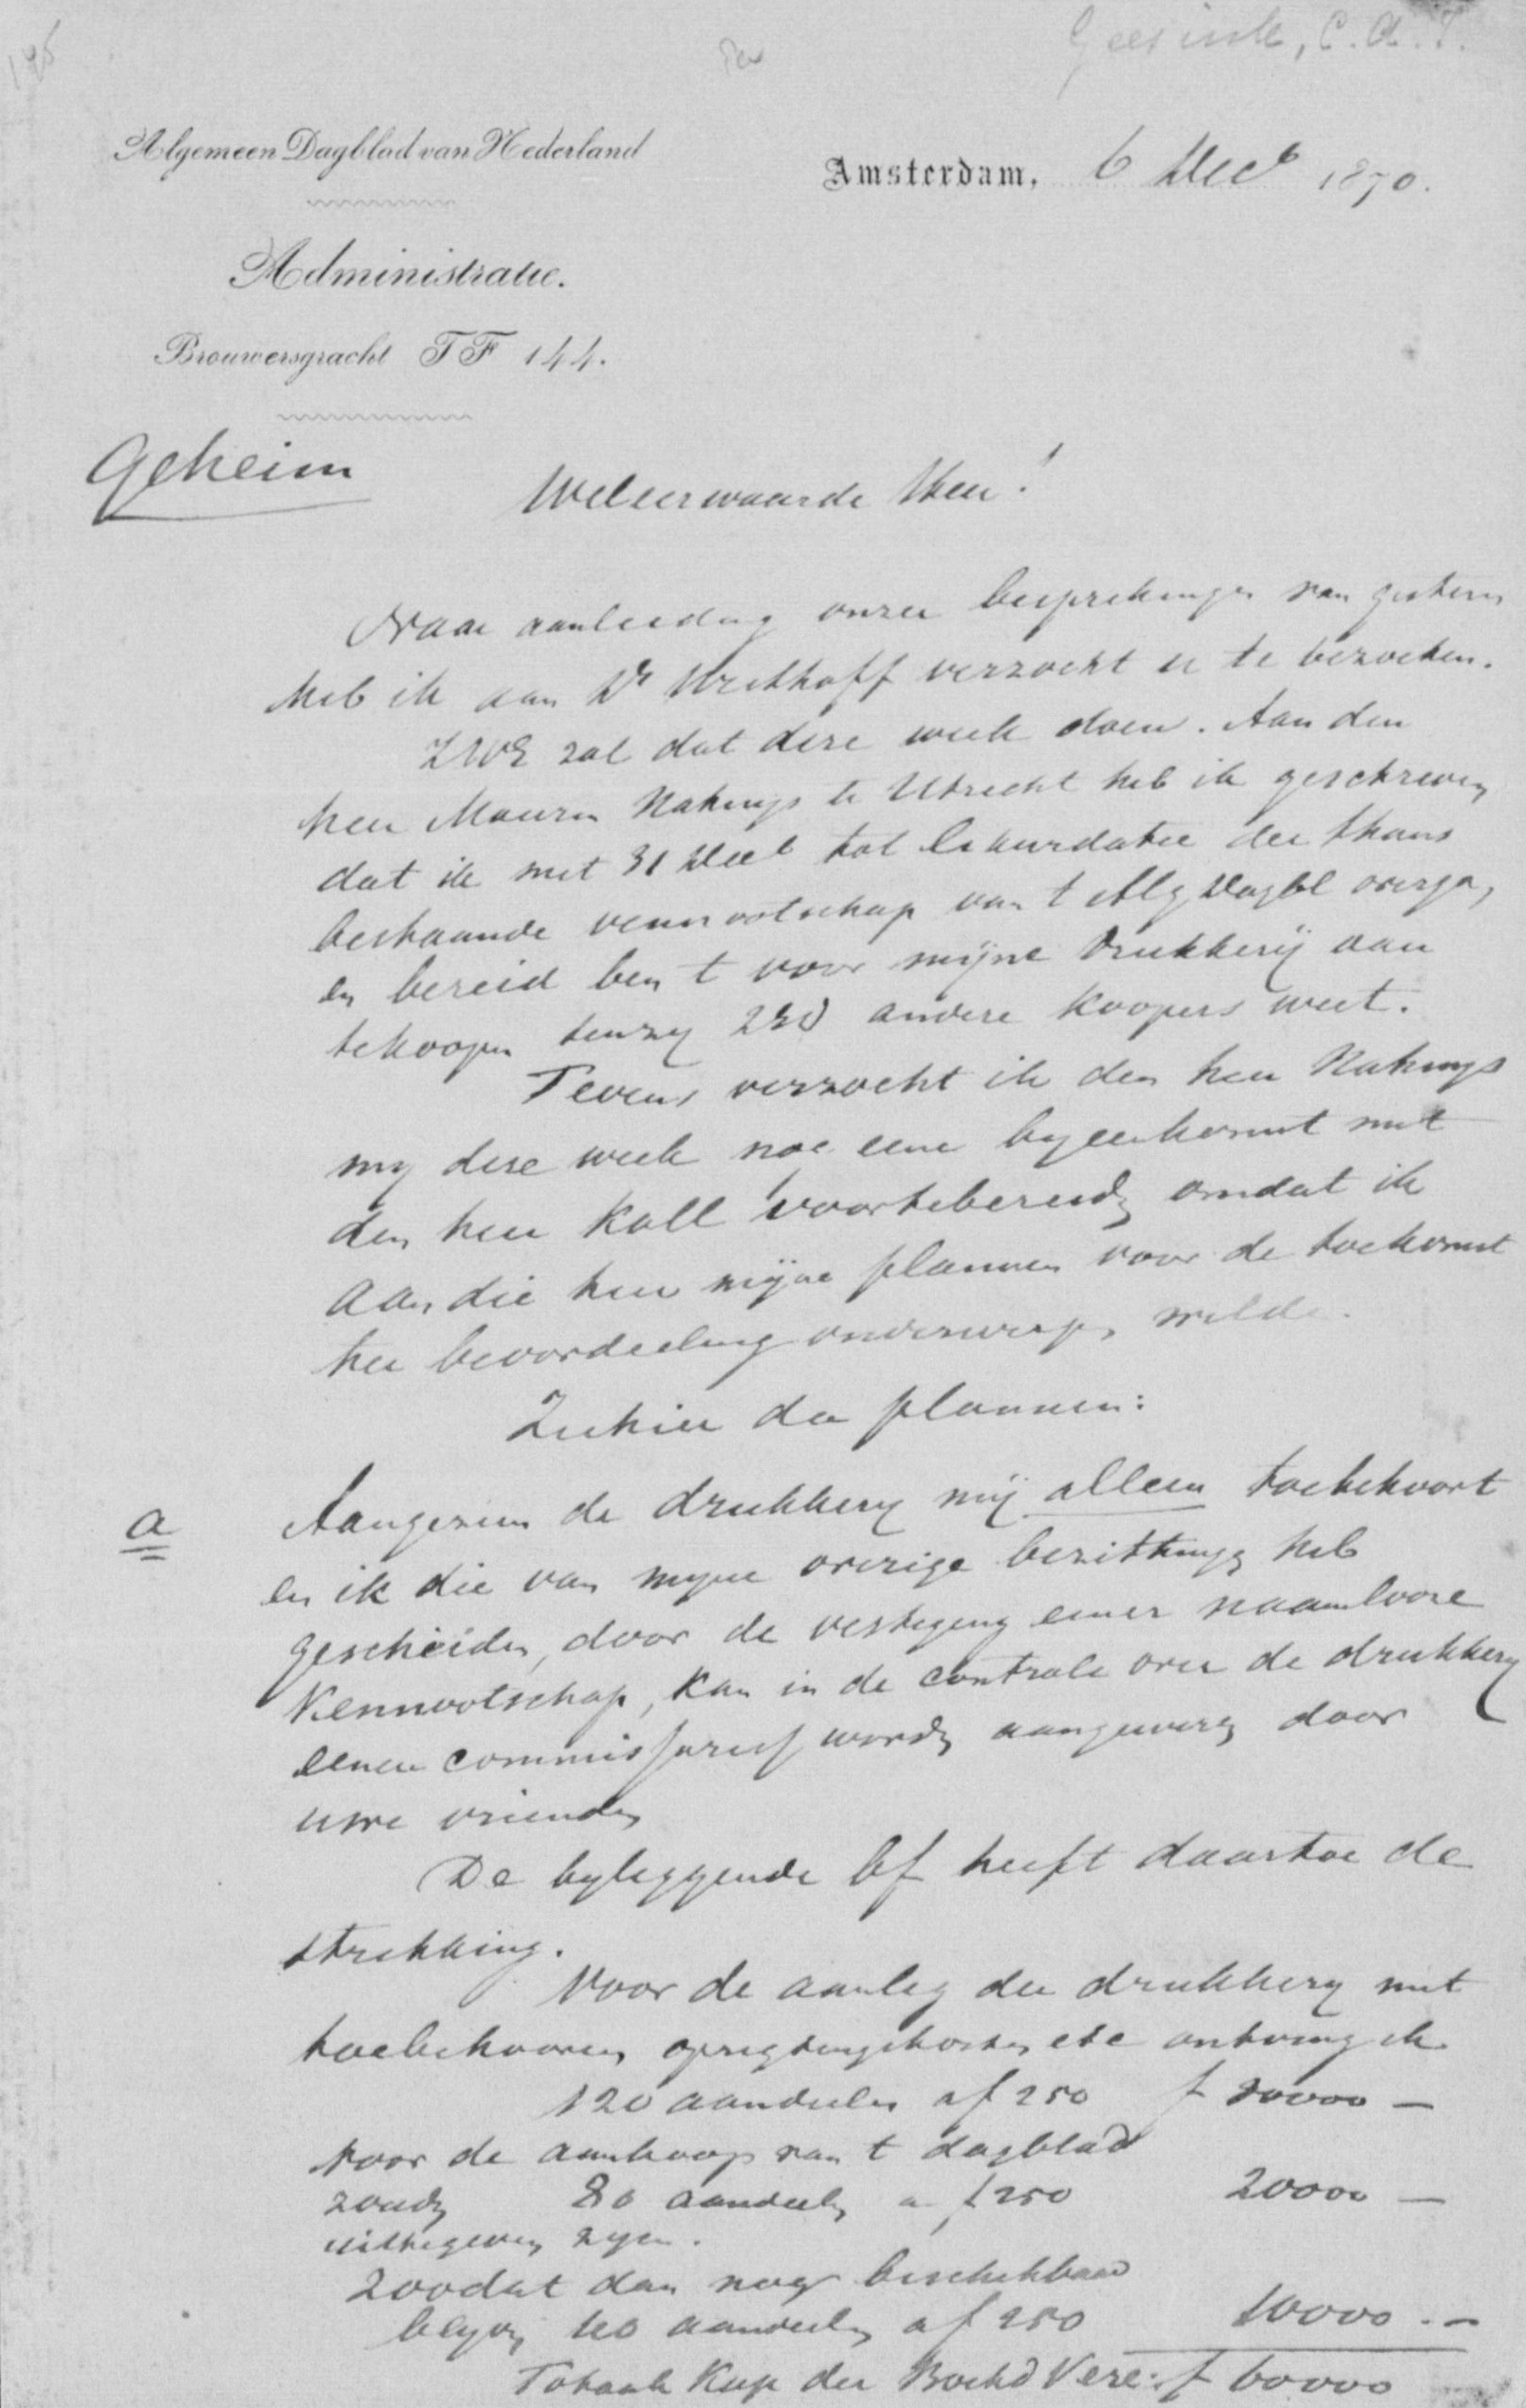 Geesink, C. A. J.
Algemeen Dagblad van Nederland
Amsterdam, 6 Dec 1870.
Administratie.
Brouwersgracht TF 144.
Geheim
Weleerwaarde Heer!
Naar aanleiding onzer besprekingen van gisteren
heb ik aan Dr Westhoff verzocht u te bezoeken.
ZWE zal dat deze week doen. Aan den
heer Nakuijs te Utrecht heb ik geschreven
dat ik met 31 Dec tot liquidatie der thans
bestaande vennootschap van t Alg Dagbl overga,
en bereid ben t voor mijne drukkerij aan
tekoopen tenzij ZEd andere koopers weet.
Tevens verzocht ik den heer Nakuijs
my deze week nog eene byeenkomst met
den heer Koll voortebereiden omdat ik
aan die heer mijne plannen voor de toekomst
ter beoordeeling onderwerpen wilde.
Ziehier de plannen:
a Aangezien de drukkery mij alleen toebehoort
en ik die van myne overige bezittingen heb
gescheiden, door de vestiging eener naamlooze
Vennootschap, kan in de controle over de drukkery
eenen commissaris worden aangewezen door
uwe vrienden
De byleggende bf heeft daartoe de
strekking.
Voor de aanleg der drukkery met
toebehooren, oprigtingskosten etc ontving ik
120 aandeelen a f 250 f 30000 —
voor de aankoop van t dagblad
zouden 80 aandeelen a f 250 20000 —
uittegeven zyn.
zoodat dan nog beschikbaar
blyven 40 aandeelen a f 250 10000 . —
Totaal Kap der Boekd Vere: f 60000